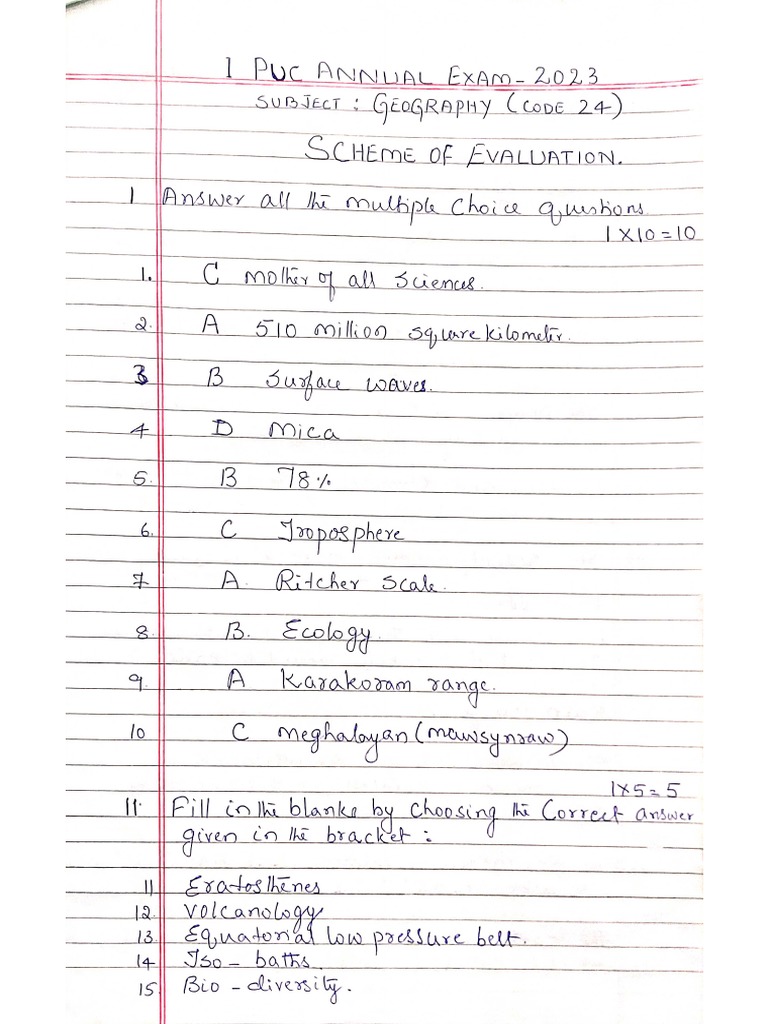 I PUC ANNUAL EXAM - 2023
SUBJECT : GEOGRAPHY (CODE 24)
SCHEME OF EVALUATION.
I Answer all the multiple choice questions
1 X 10 = 10
1. C mother of all sciences.
2. A 510 million square kilometer.
3 B Surface waves.
4 D Mica
5. B 78%
6. C Troposphere
7 A. Ritcher scale.
8. B. Ecology.
9. A Karakoram range.
10 C meghalayan (mawsynraw)
1 X 5 = 5
II. Fill in the blanks by choosing the correct answer
given in the bracket :
11 Eratosthenes
12. Volcanology
13 Equatorial low pressure belt.
14 Iso - baths.
15 Bio - diversity.